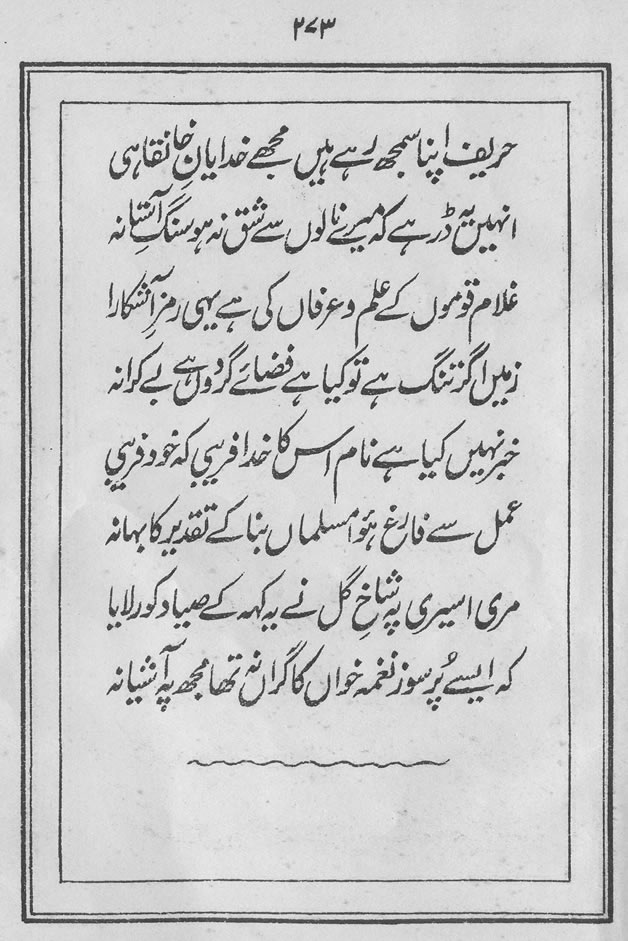 ۲۷۳
حریف اپنا سمجھ رہے ہیں مجھے خدایانِ خانقاہی
انہیں یہ ڈر ہے کہ میرے نالوں سے شق نہ ہو سنگِ آستانہ
غلام قوموں کے علم و عرفاں کی ہے یہی رمزِ آشکارا
زمیں اگر تنگ ہے تو کیا ہے فضائے گردوں ہے بے کرانہ
خبر نہیں کیا ہے نام اس کا خدا فریبی کہ خود فریبی
عمل سے فارغ ہؤا مسلماں بنا کے تقدیر کا بہانہ
مری اسیری پہ شاخِ گل نے یہ کہہ کے صیاد کو رلایا
کہ ایسے پُرسوز نغمہ خواں کا گراں نہ تھا مجھ پہ آشیانہ